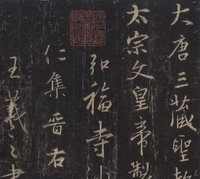 大唐三藏聖教
太宗文皇帝製
弘福寺沙
仁集晉右
王羲之書